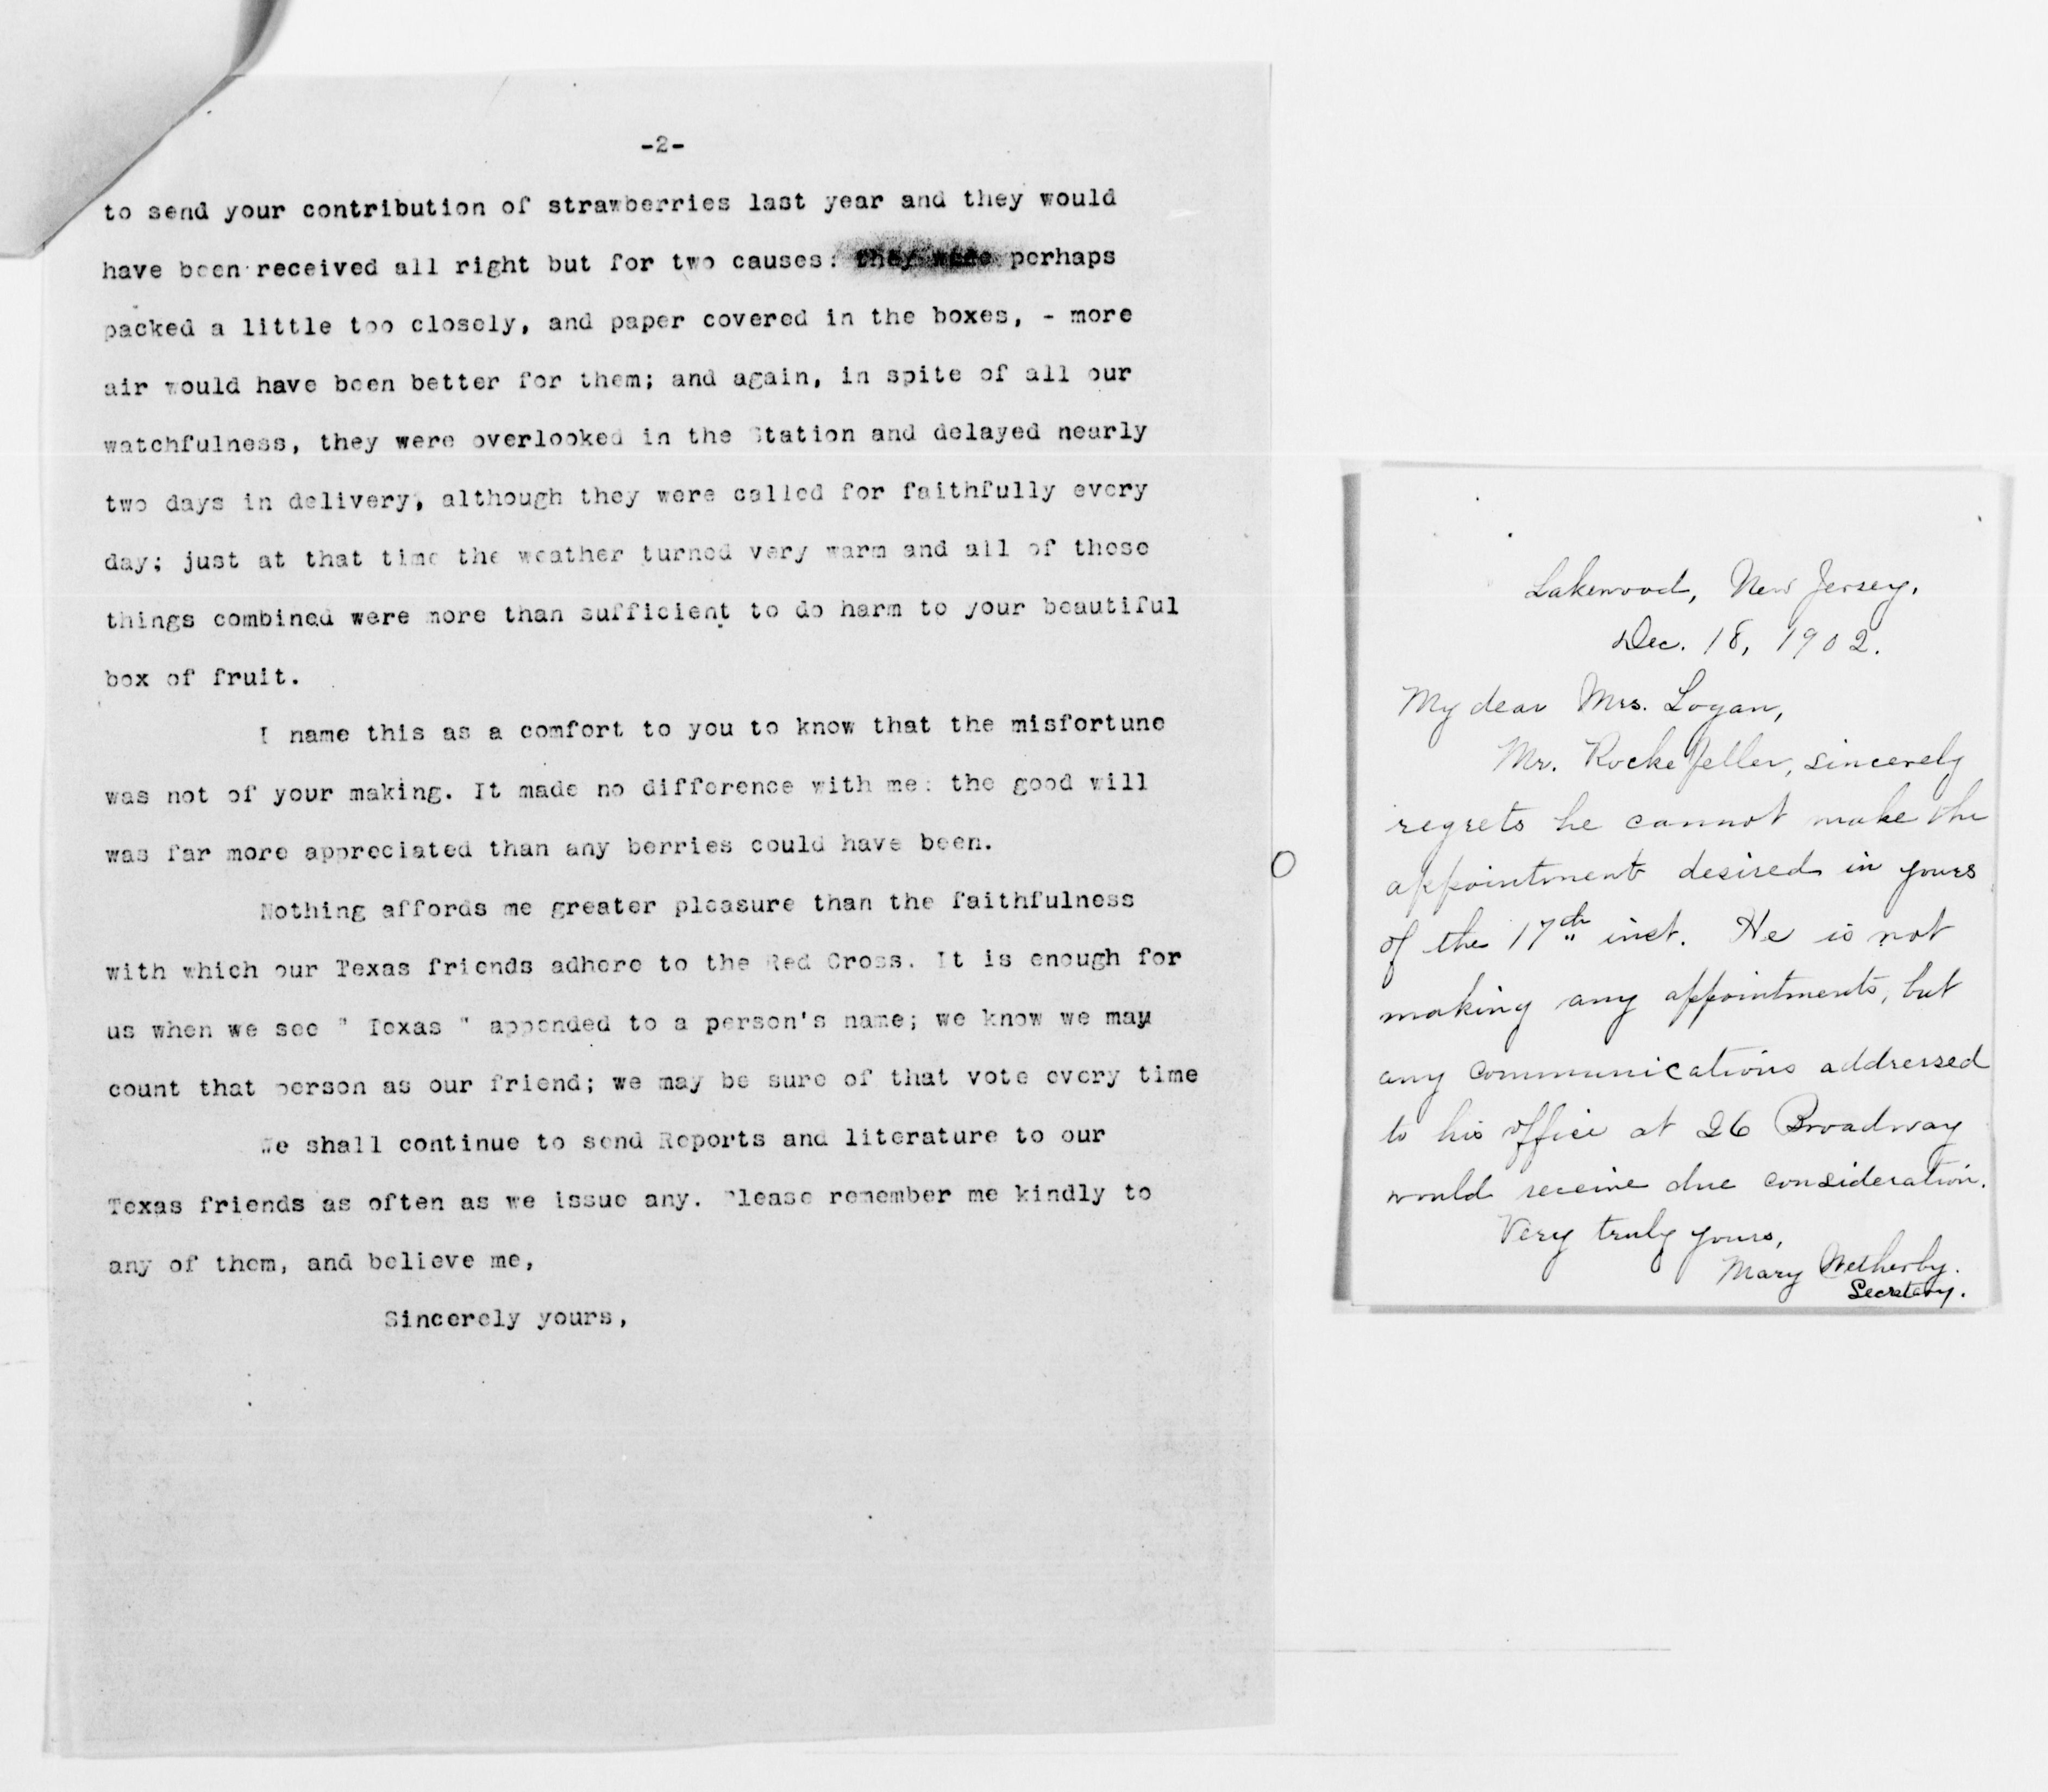 -2-
to send your contribution of strawberries last year and they would
have been received all right but for two causes: they were perhaps
packed a little too closely, and paper covered in the boxes, - more
air would have been better for them; and again, in spite of all our
watchfulness, they were overlooked in the Station and delayed nearly
two days in delivery, although they were called for faithfully every
day; just at that time the weather turned very warm and all of these
things combined were more than sufficient to do harm to your beautiful
box of fruit.
I name this as a comfort to you to know that the misfortune
was not of your making. It made no difference with me: the good will
was far more appreciated than any berries could have been.
Nothing affords me greater pleasure than the faithfulness
with which our Texas friends adhere to the Red Cross. It is enough for
us when we see " Texas " appended to a person's name; we know we may
count that person as our friend; we may be sure of that vote every time
We shall continue to send Reports and literature to our
Texas friends as often as we issue any. Please remember me kindly to
any of them, and believe me,
Sincerely yours,
Lakewood, New Jersey.
Dec. 18, 1902.
My dear Mrs. Logan,
Mr. Rockefeller, sincerely
regrets he cannot make the
appointment desired in yours
of the 17th inst. He is not
making any appointments, but
any communications addressed
to his office at 26 Broadway
would receive due consideration.
Very truly yours,
Mary Wetherby.
Secretary.